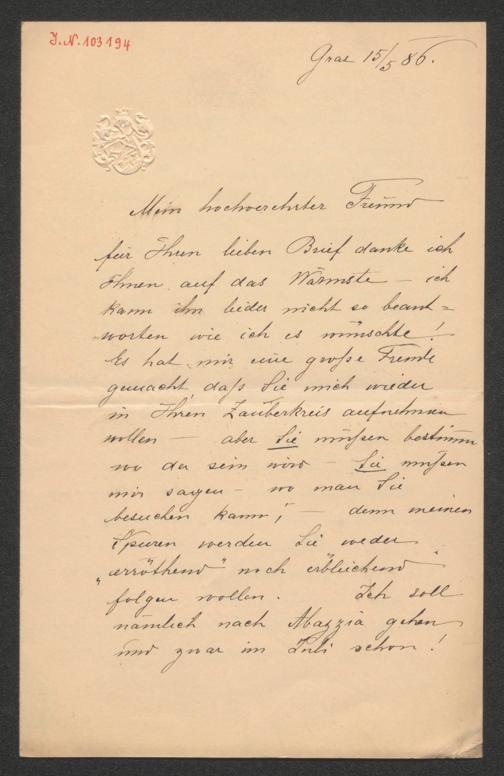 J.N. 103194
Graz 15/5 86.
Mein hochverehrter Freund
für Ihren lieben Brief danke ich
Ihnen auf das Wärmste — ich
kann ihn leider nicht so beant=
worten wie ich es wünschte!
Es hat mir eine große Freude
gemacht, daß Sie mich wieder
in Ihren Zauberkreis aufnehmen
wollen — aber Sie müssen bestimmen
wo der sein wird — Sie müssen
mir sagen — wo man Sie
besuchen kann; — denn meinen
Spuren werden Sie weder
„erröthend" noch erbleichend
folgen wollen. Ich soll
nämlich nach Abazzia gehen
und zwar im Juli schon!